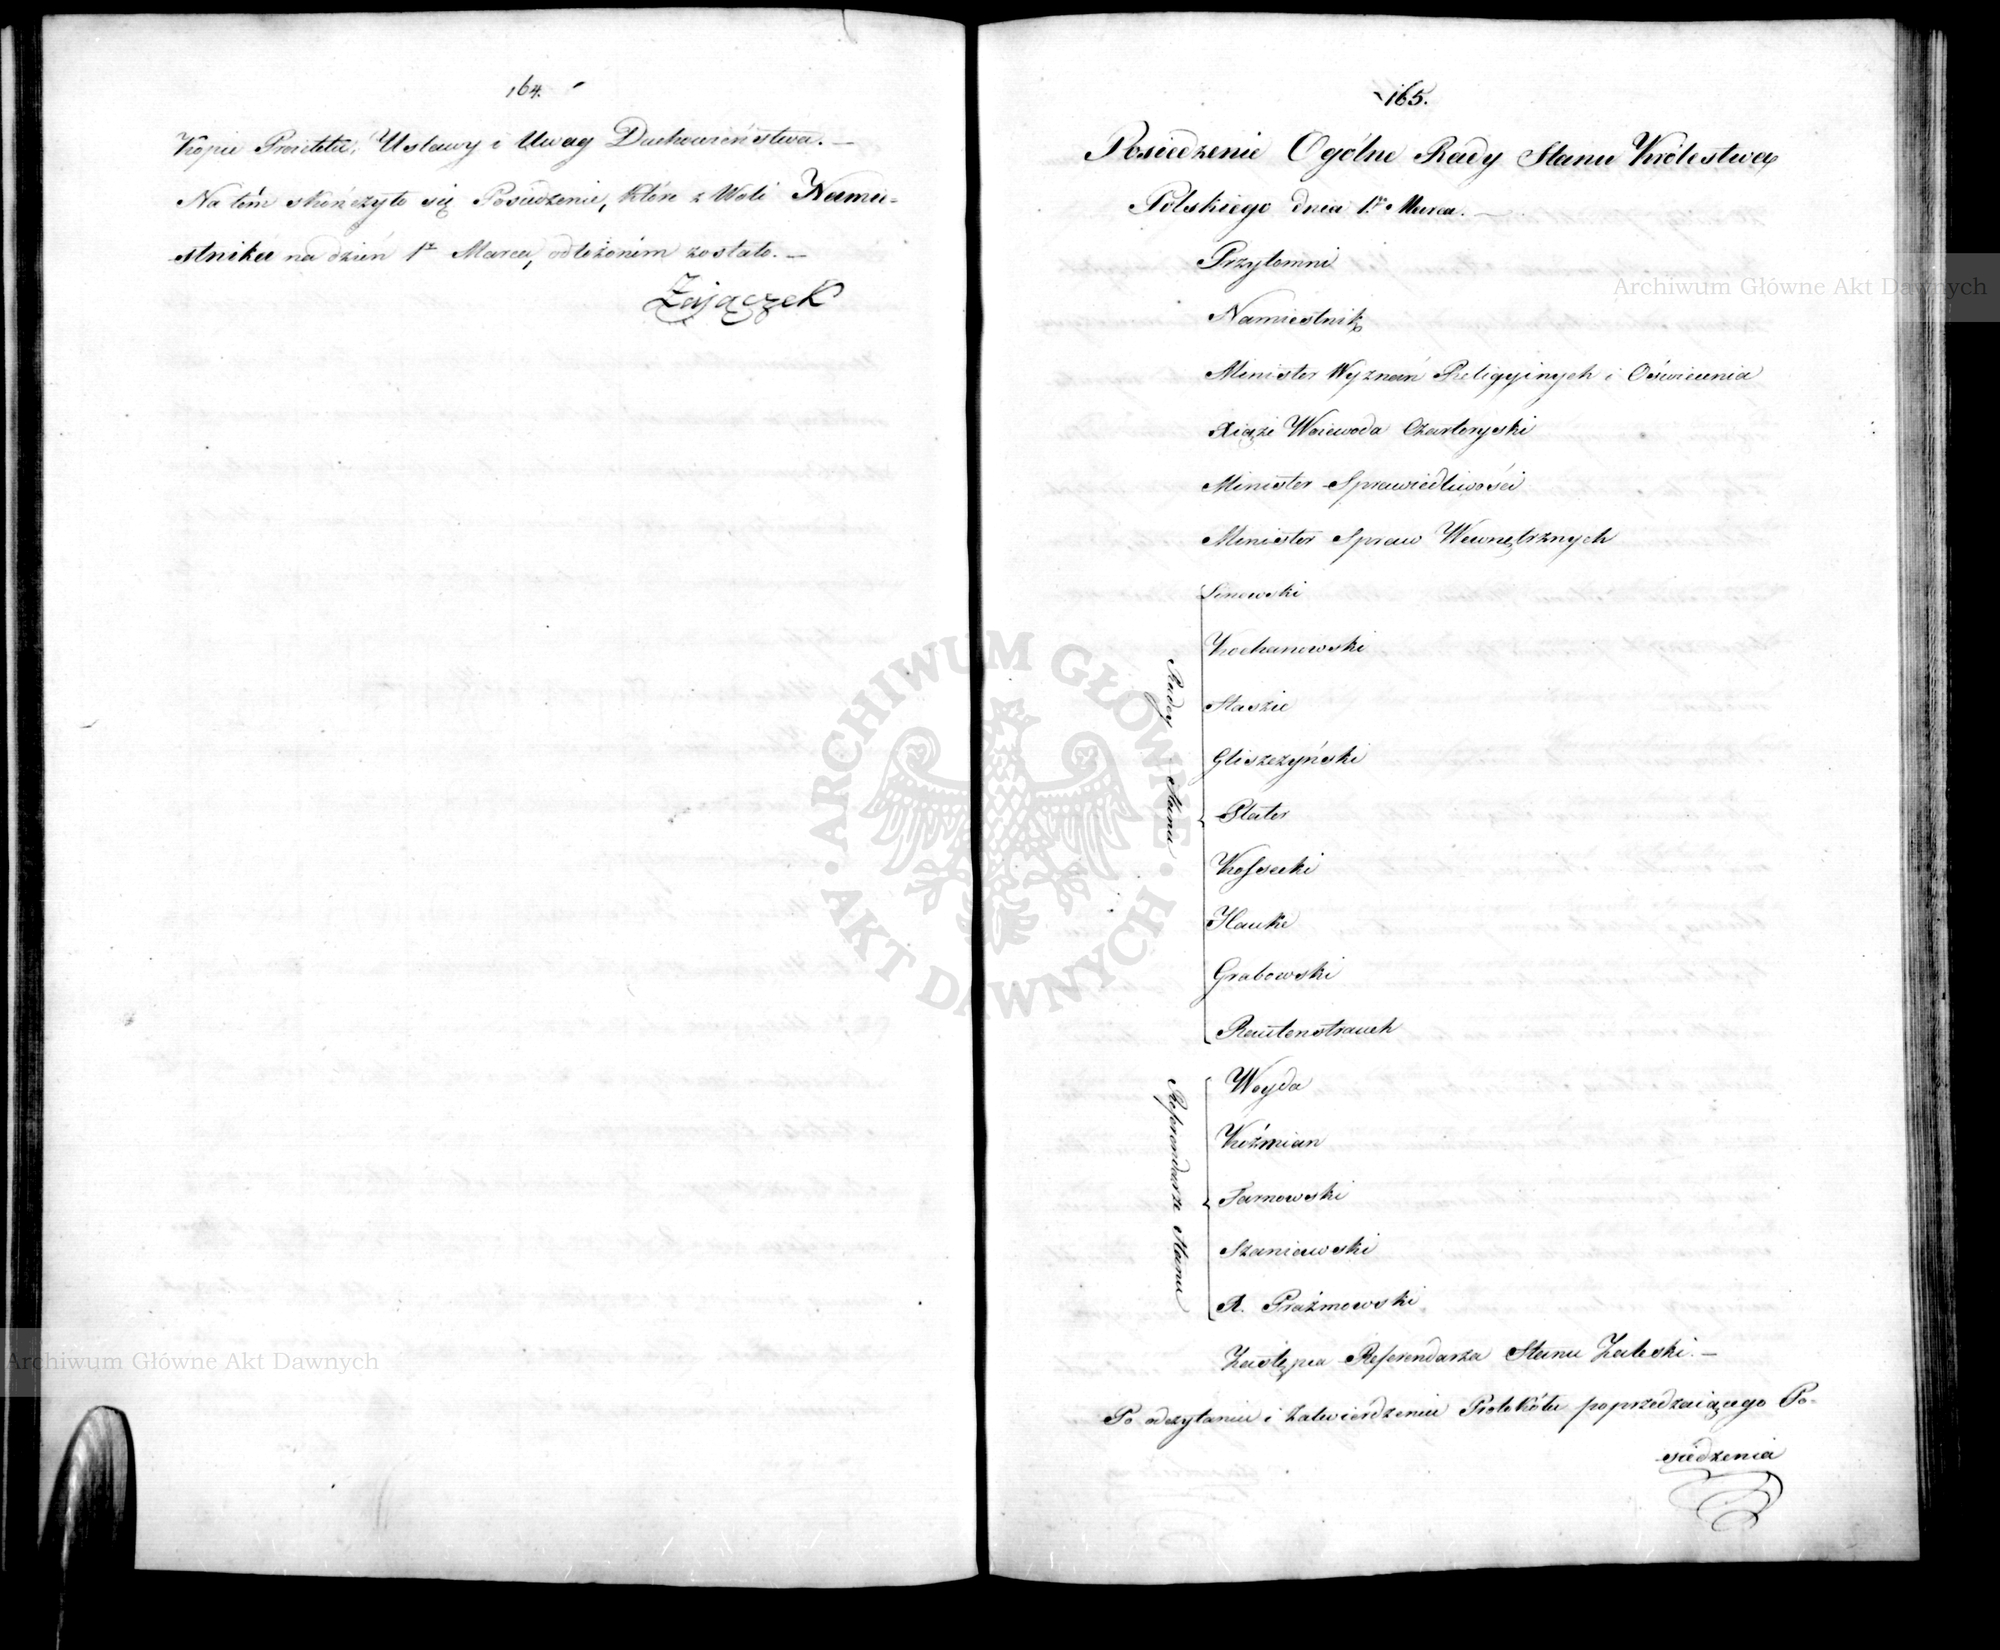 164.
Kopie Proiektu, Ustawy i Uwag Duchowieństwa. —
Na tém skończyło się Posiedzenie, które z Woli Namie-
stnika na dzień 1 Marca, odłożoném zostało. —
Zajączek
165.
Posiedzenie Ogólne Rady Stanu Królestwa
Polskiego dnia 1. Marca. —
Przytomni
Namiestnik
Minister Wyznań Religyinych i Oświecenia
Xiąże Woiewoda Czartoryski
Minister Sprawiedliwości
Minister Spraw Wewnętrznych
Radcy Stanu
Linowski
Kochanowski
Staszic
Gliszczyński
Plater
Kossecki
Hauke
Grabowski
Rautenstrauch
Referendarze Stanu
Woyda
Koźmian
Tarnowski
Szaniawski
X. Prażmowski
Zastępca Referendarza Stanu Zaleski. —
Po odczytaniu i zatwierdzeniu Protokółu poprzedzaiącego Po-
siedzenia
Archiwum Główne Akt Dawnych
ARCHIWUM GŁÓWNE · AKT DAWNYCH ·
Archiwum Główne Akt Dawnych